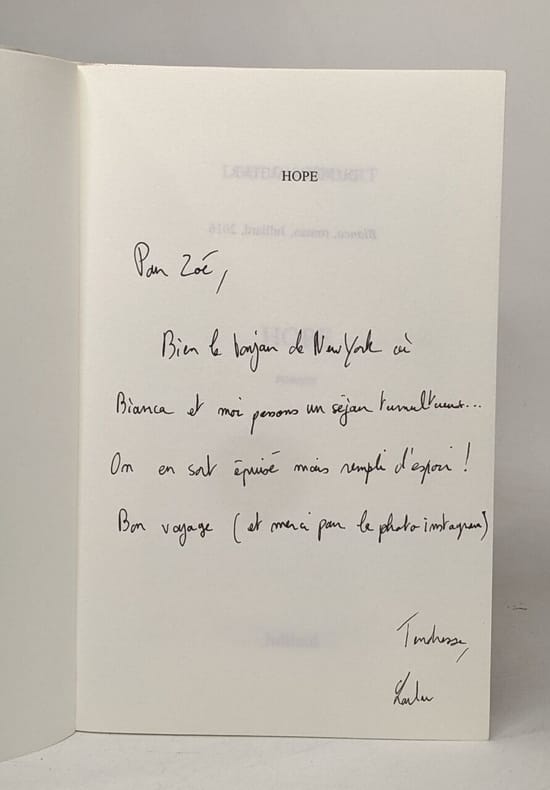 HOPE
Pour Zoé,
Bien le bonjour de New York où
Bianca et moi passons un séjour tumultueux...
On en sort épuisé mais rempli d'espoir !
Bon voyage (et merci pour la photo instagram)
Tendresse,